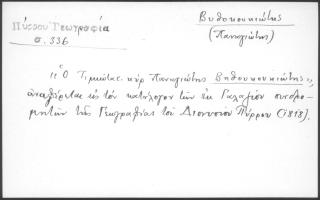 Πύρρου Γεωγραφία
σ. 336
Βυθοκουκιώτης
(Παναγιώτης)
"Ο Τιμιώτατ. κὺρ Παναγιώτης Βηθουκουκιώτης",
ἀναφέρεται εἰς τὸν κατάλογον τῶν ἐκ Γαλαξιδίου συνδρο-
μητῶν τῆς Γεωγραφίας τοῦ Διονυσίου Πύρρου (1818).